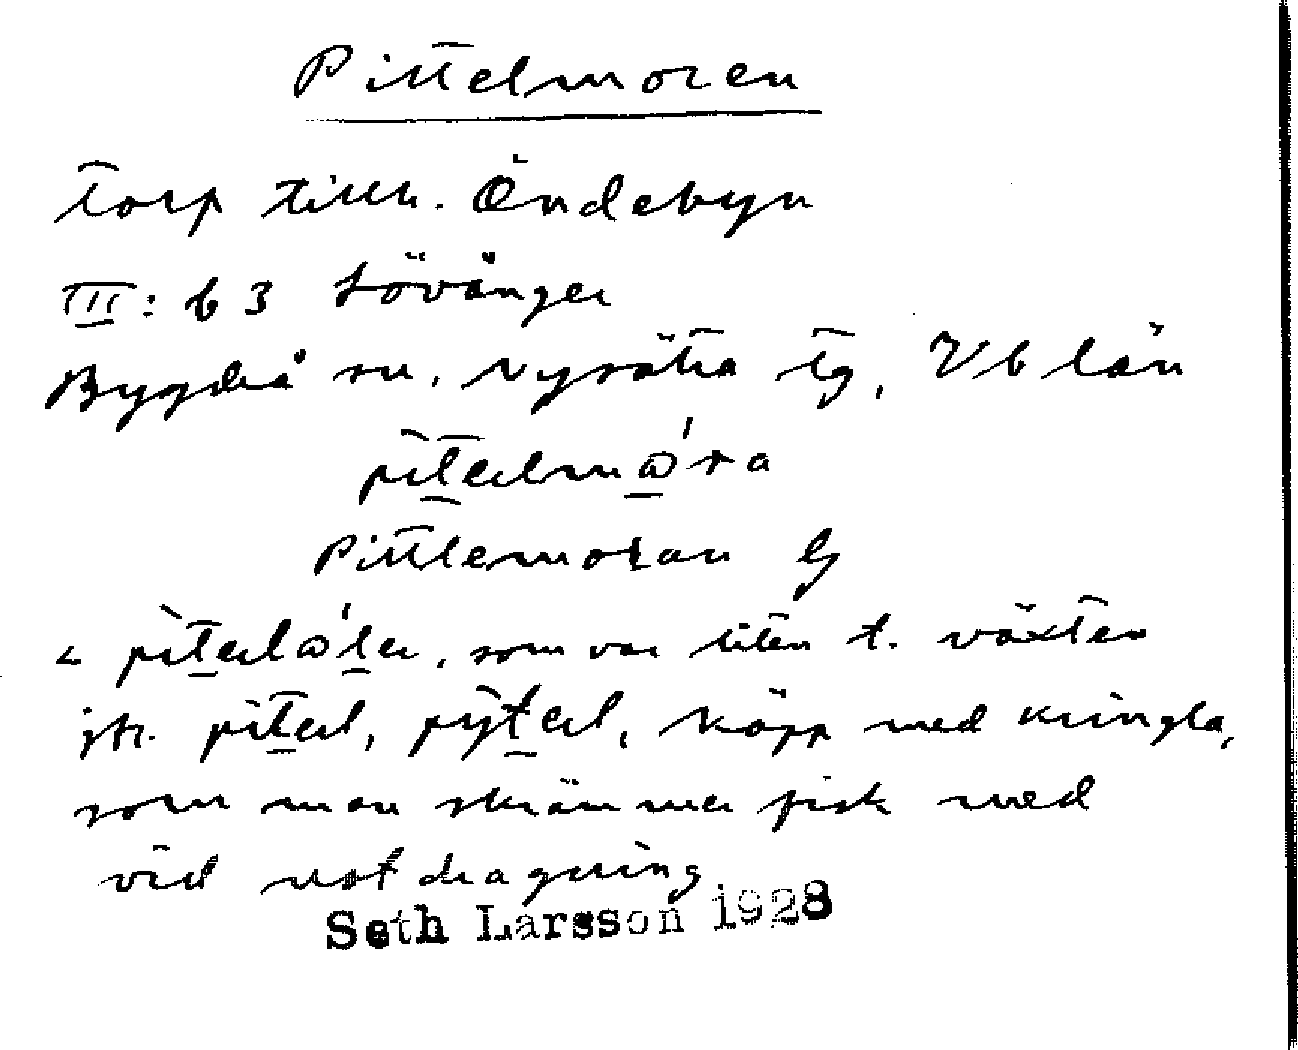 Pittelmoren
Torp tillh. Öndebyn
III: b 3 Lövånger
Bygdeå sn, Nysätra tg, Vb län
pìtelmω'ra
Pittlemoran Ej
< pìtelω'le, som var liten t. växten
jfr. pìtel, pỳtel, käpp med kringla,
som man skrämmer fisk med
vid notdragning
Seth Larsson 1928